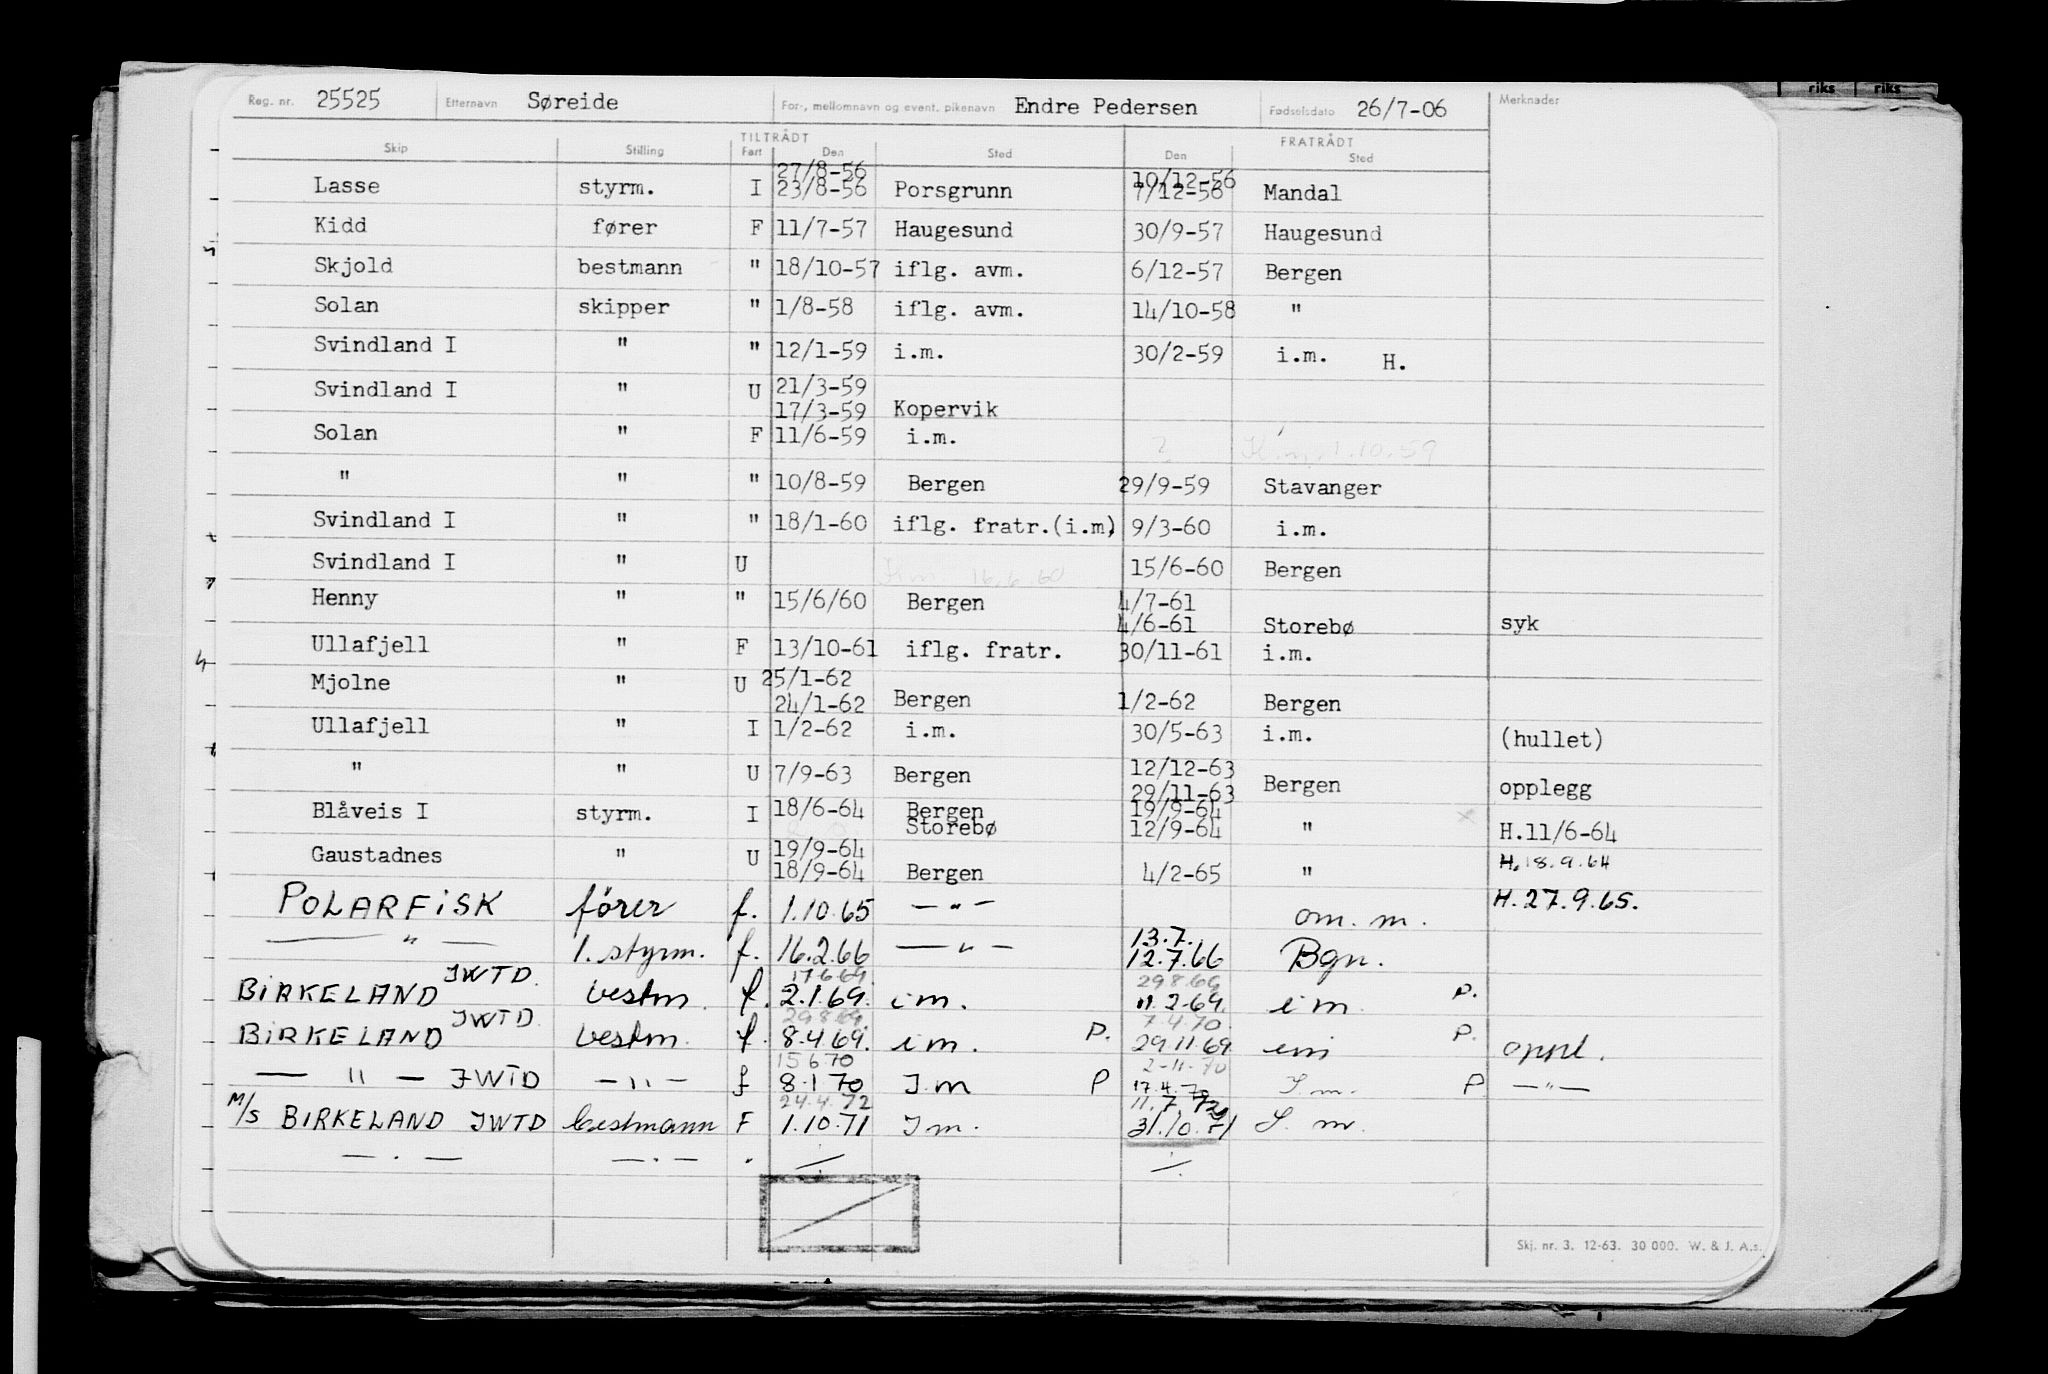 riks riks
Reg. nr. 25525 Etternavn Søreide For-, mellomnavn og event. pikenavn Endre Pedersen Fødselsdato 26/7-06 Merknader
TILTRÅDT FRATRÅDT
Skip Stilling Fart Den Sted Den Sted
27/8-56 10/12-56
Lasse styrm. I 23/8-56 Porsgrunn 7/12-56 Mandal
Kidd fører F 11/7-57 Haugesund 30/9-57 Haugesund
Skjold bestmann " 18/10-57 iflg. avm. 6/12-57 Bergen
Solan skipper " 1/8-58 iflg. avm. 14/10-58 "
Svindland I " " 12/1-59 i.m. 30/2-59 i.m. H.
Svindland I " U 21/3-59
17/3-59 Kopervik
Solan " F 11/6-59 i.m. 1.10.59
" " " 10/8-59 Bergen 29/9-59 Stavanger
Svindland I " " 18/1-60 iflg. fratr.(i.m) 9/3-60 i.m.
Svindland I " U 16.6.60 15/6-60 Bergen
Henny " " 15/6/60 Bergen 4/7-61
4/6-61 Storebø syk
Ullafjell " F 13/10-61 iflg. fratr. 30/11-61 i.m.
Mjolne " U 25/1-62
24/1-62 Bergen 1/2-62 Bergen
Ullafjell " I 1/2-62 i.m. 30/5-63 i.m. (hullet)
" " U 7/9-63 Bergen 12/12-63
29/11-63 Bergen opplegg
Blåveis I styrm. I 18/6-64 Bergen 19/9-64
Storebø 12/9-64 " H.11/6-64
Gaustadnes " U 19/9-64 H.18.9.64
18/9-64 Bergen 4/2-65 "
POLARFISK förer f. 1.10.65 — " — om. m. H.27.9.65.
— " — 1. styrm. f. 16.2.66 — " — 13.7.
12.7.66 Bgn.
17.6.69 29.8.69
BIRKELAND JWTD. bestm. f. 2.1.69. i m. 11.2.69. i m. P.
29.8.69 7.4.70.
BIRKELAND JWTD. bestm. f. 8.4.69. i m. P. 29.11.69 im P. oppl.
15 6 70 2-11-70
— " — JWTD — " — f 8.1 70 I.m P 17.4.70 I.m. P — " —
24.4.72 11.7.72
M/S BIRKELAND JWTD bestmann F 1.10.71 I m. 31.10.71 I. m.
— . — — . — . ./. ./.
Skj. nr. 3. 12-63. 30 000. W. & J. A.s.